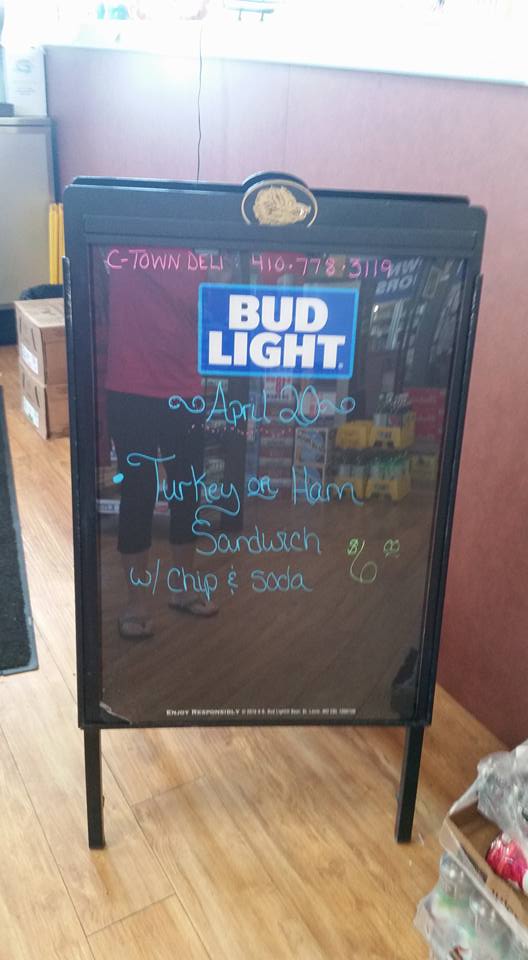 C-TOWN DELI 410·778·3119
BUD
LIGHT
~April 20~
• Turkey or Ham
Sandwich
w/ chip & soda $6.00
ENJOY RESPONSIBLY